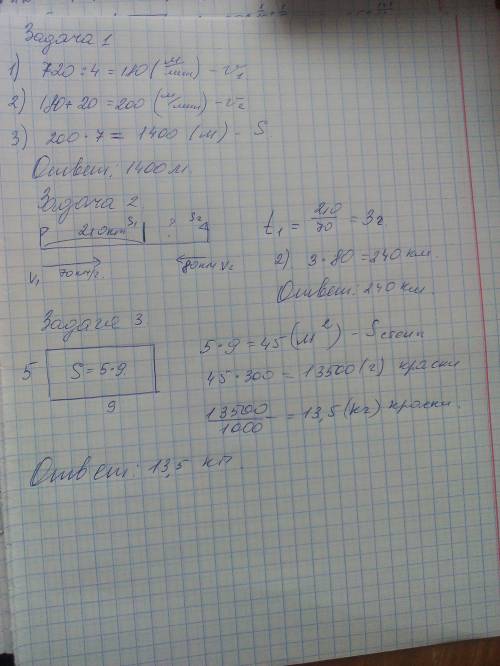 Задача 1
1) 720 : 4 = 180 (м/мин) - v₁
2) 180 + 20 = 200 (м/мин) - v₂
3) 200 · 7 = 1400 (м) - S
Ответ: 1400 м.
Задача 2
210 км S₁ ? S₂
V₁ 70 км/г. 80 км V₂
t₁ = 210/70 = 3г
2) 3 · 80 = 240 км.
Ответ: 240 км.
Задача 3
5 S = 5 · 9
9
5 · 9 = 45 (м²) - S стены
45 · 300 = 13500 (г) краски
13500/1000 = 13,5 (кг) краски.
Ответ: 13,5 кг.